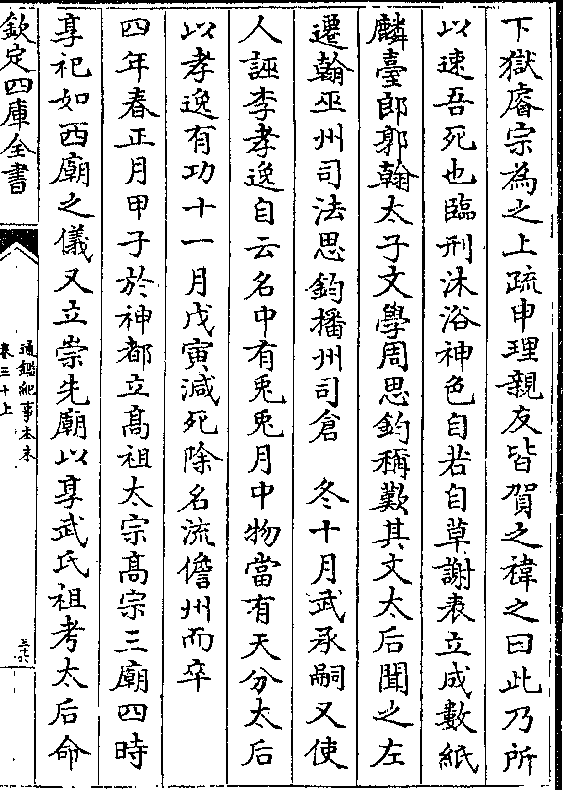 下獄睿宗為之上疏申理親友皆賀之禕之曰此乃所
以速吾死也臨刑沐浴神色自若自草謝表立成數紙
麟臺郎郭翰太子文學周思鈞稱歎其文太后聞之左
遷翰巫州司法思鈞播州司倉　冬十月武承嗣又使
人誣李孝逸自云名中有兎兎月中物當有天分太后
以孝逸有功十一月戊寅減死除名流儋州而卒
四年春正月甲子於神都立髙祖太宗髙宗三廟四時
享祀如西廟之儀又立崇先廟以享武氏祖考太后命
欽定四庫全書
通鑑紀事本末
卷三十上